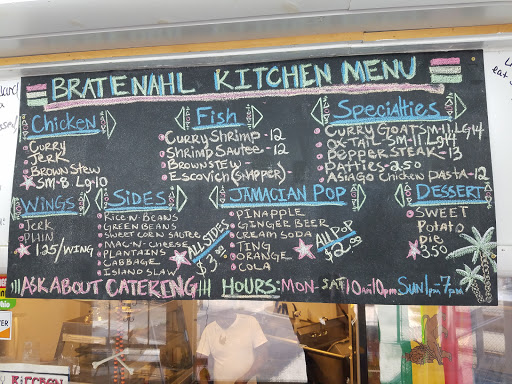 BRATENAHL KITCHEN MENU
Chicken
Curry
Jerk
Brown Stew
SM-8 Lg-10
Fish
Curry Shrimp-12
Shrimp Sautee-12
Brownstew-
Escovich (Snapper)-
Specialties
Curry Goat SM-11 Lg14
Ox-Tail-SM-11 Lg14
Pepper Steak-13
Patties 3.50
Asiago Chicken Pasta-12
Wings
Jerk
Plain
1.25/Wing
Sides
Rice-N-Beans
Green Beans
Sweet Corn Sautee
Mac-N-Cheese
Plantains
Cabbage
Island Slaw
All Sides
Jamacian Pop
Pinapple
Ginger Beer
Cream Soda
Ting
Orange
Cola
All Pop
Dessert
Sweet
Potato
Pie
3.50
!!!Ask About Catering!!! Hours: Mon-Sat 10am-10pm Sun 1pm-7pm